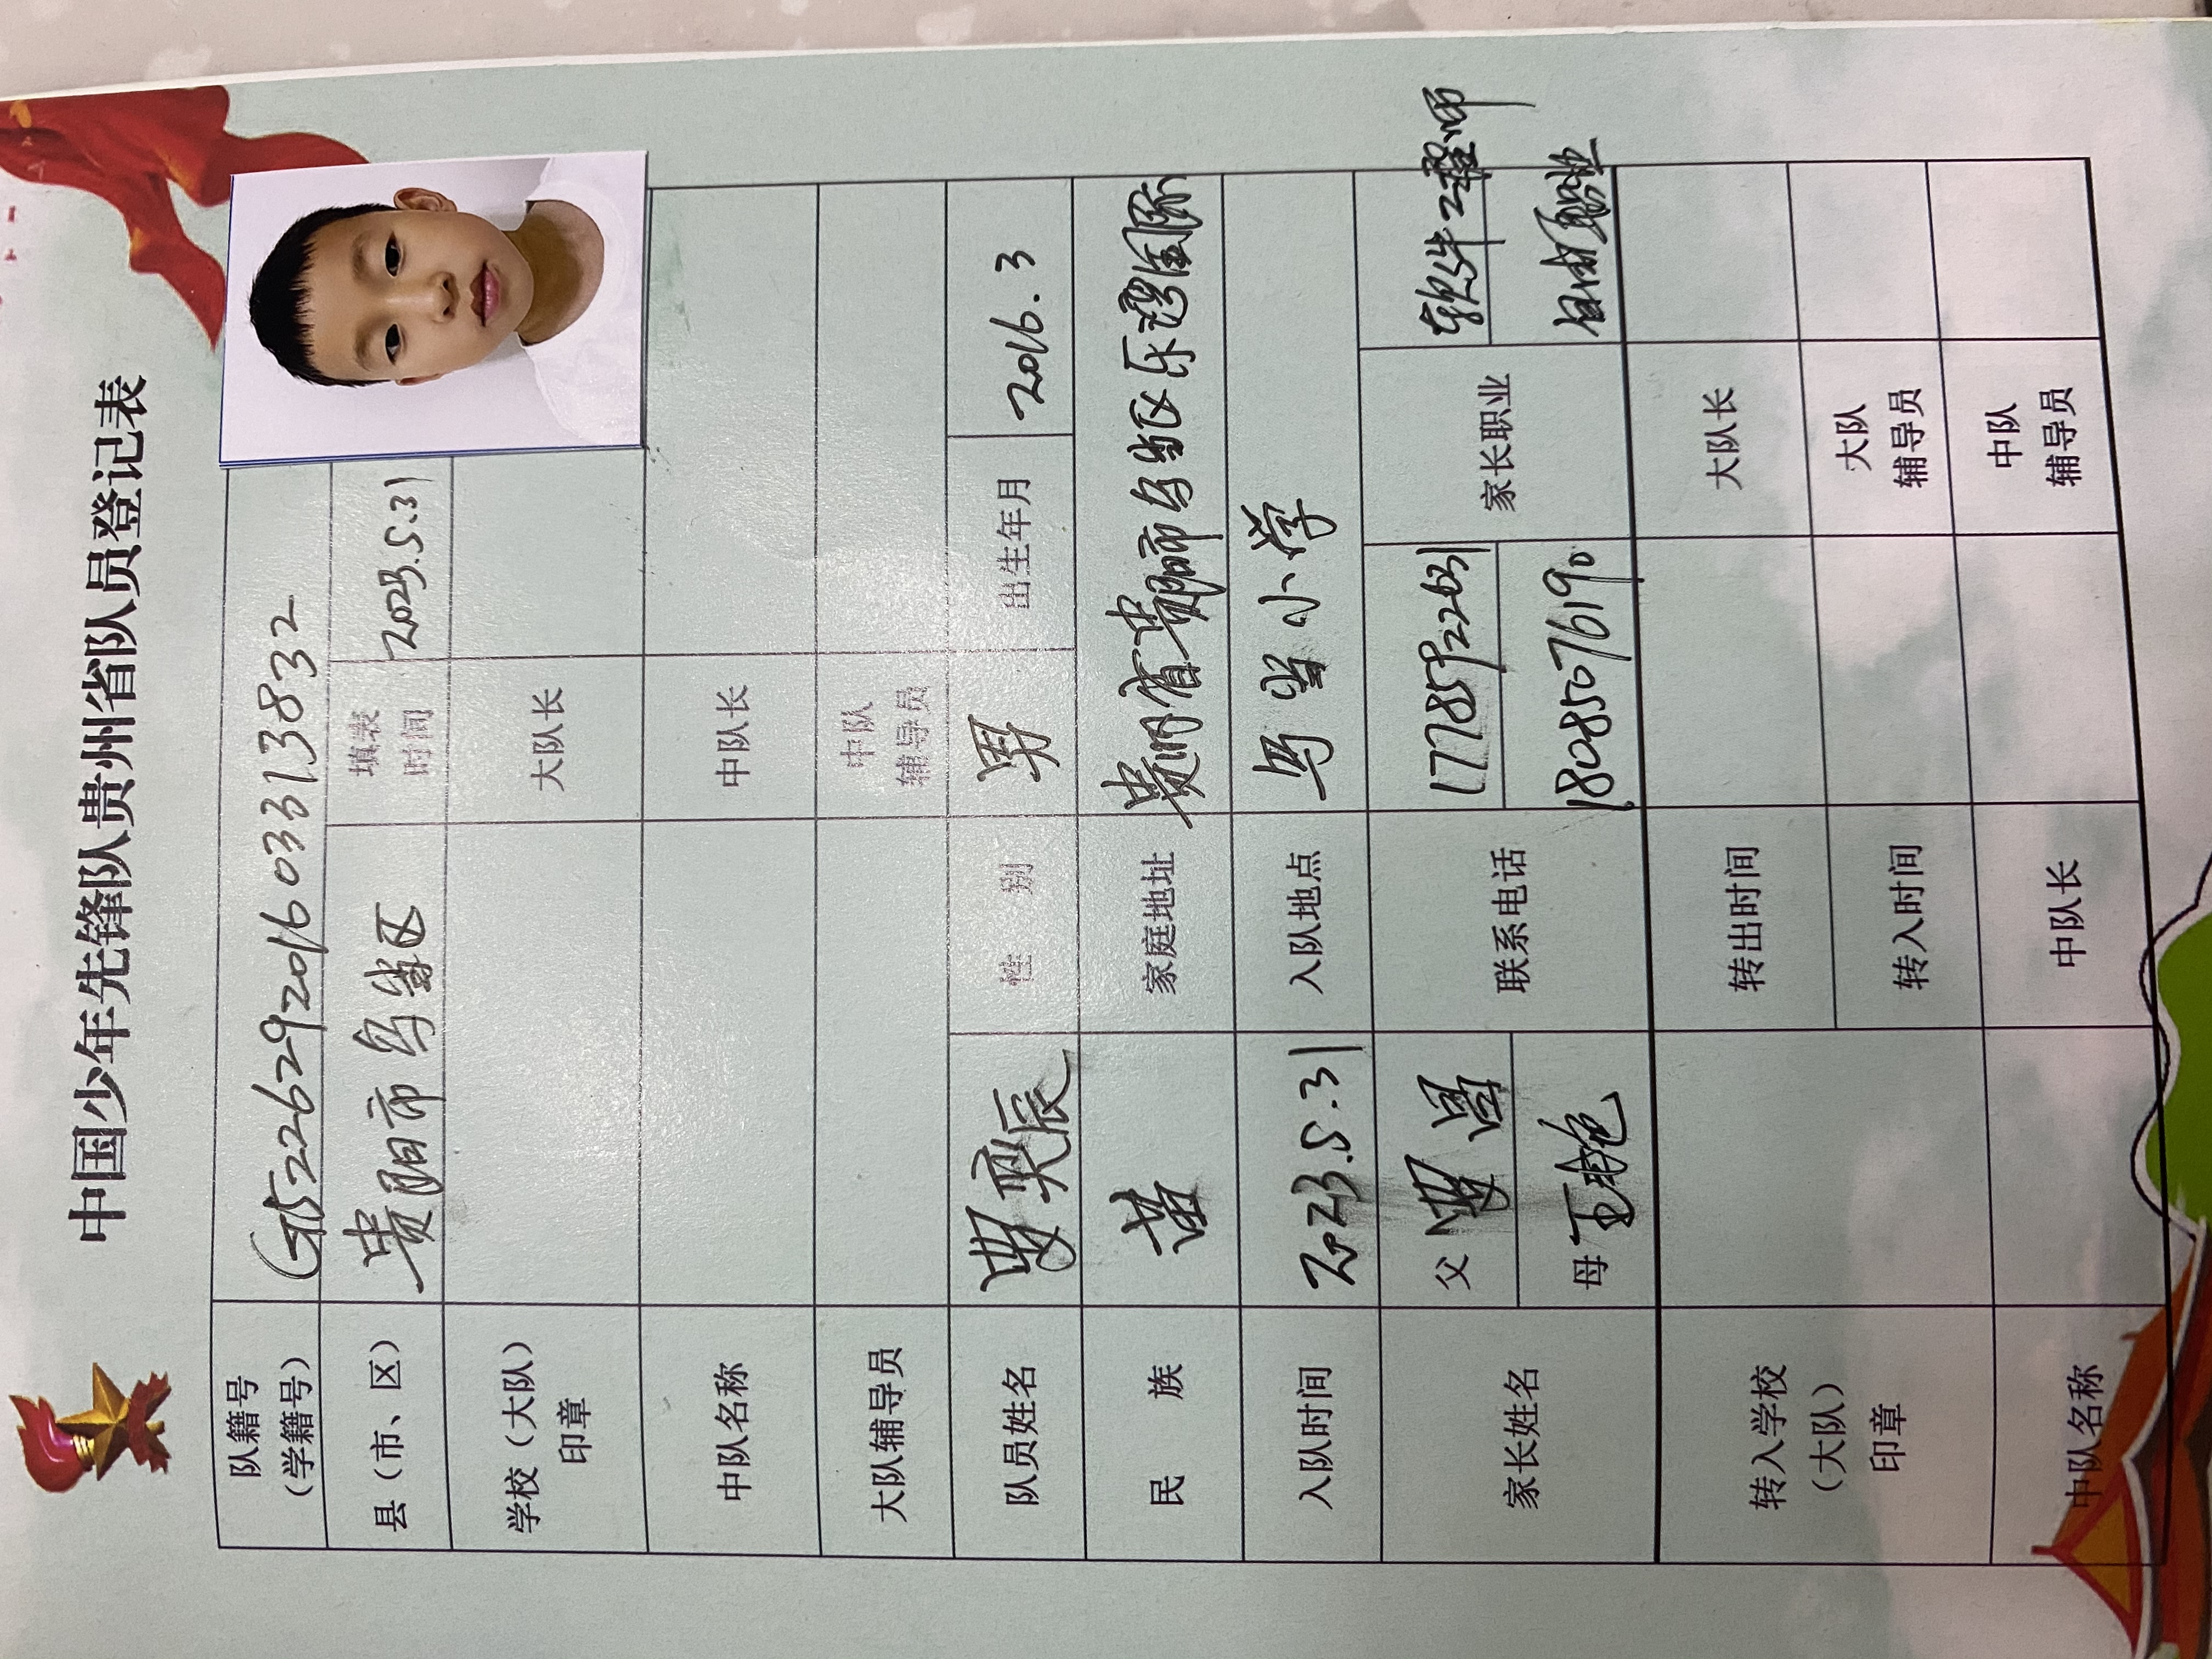 中国少年先锋队贵州省队员登记表
队籍号
(学籍号)
G522629201603313832
县(市、区)
贵阳市乌当区
填表
时间
2023.5.31
学校(大队)
印章
大队长
中队名称
中队长
大队辅导员
中队
辅导员
队员姓名
奕辰
性 别
男
出生年月
2016.3
民 族
苗
家庭地址
贵州省贵阳市乌当区乐湾国际
入队时间
2023.5.31
入队地点
乌当小学
家长姓名
父
母 王艳
联系电话
18085076190
家长职业
软件工程师
自由职业
转入学校
(大队)
印章
转出时间
大队长
转入时间
大队
辅导员
中队名称
中队长
中队
辅导员